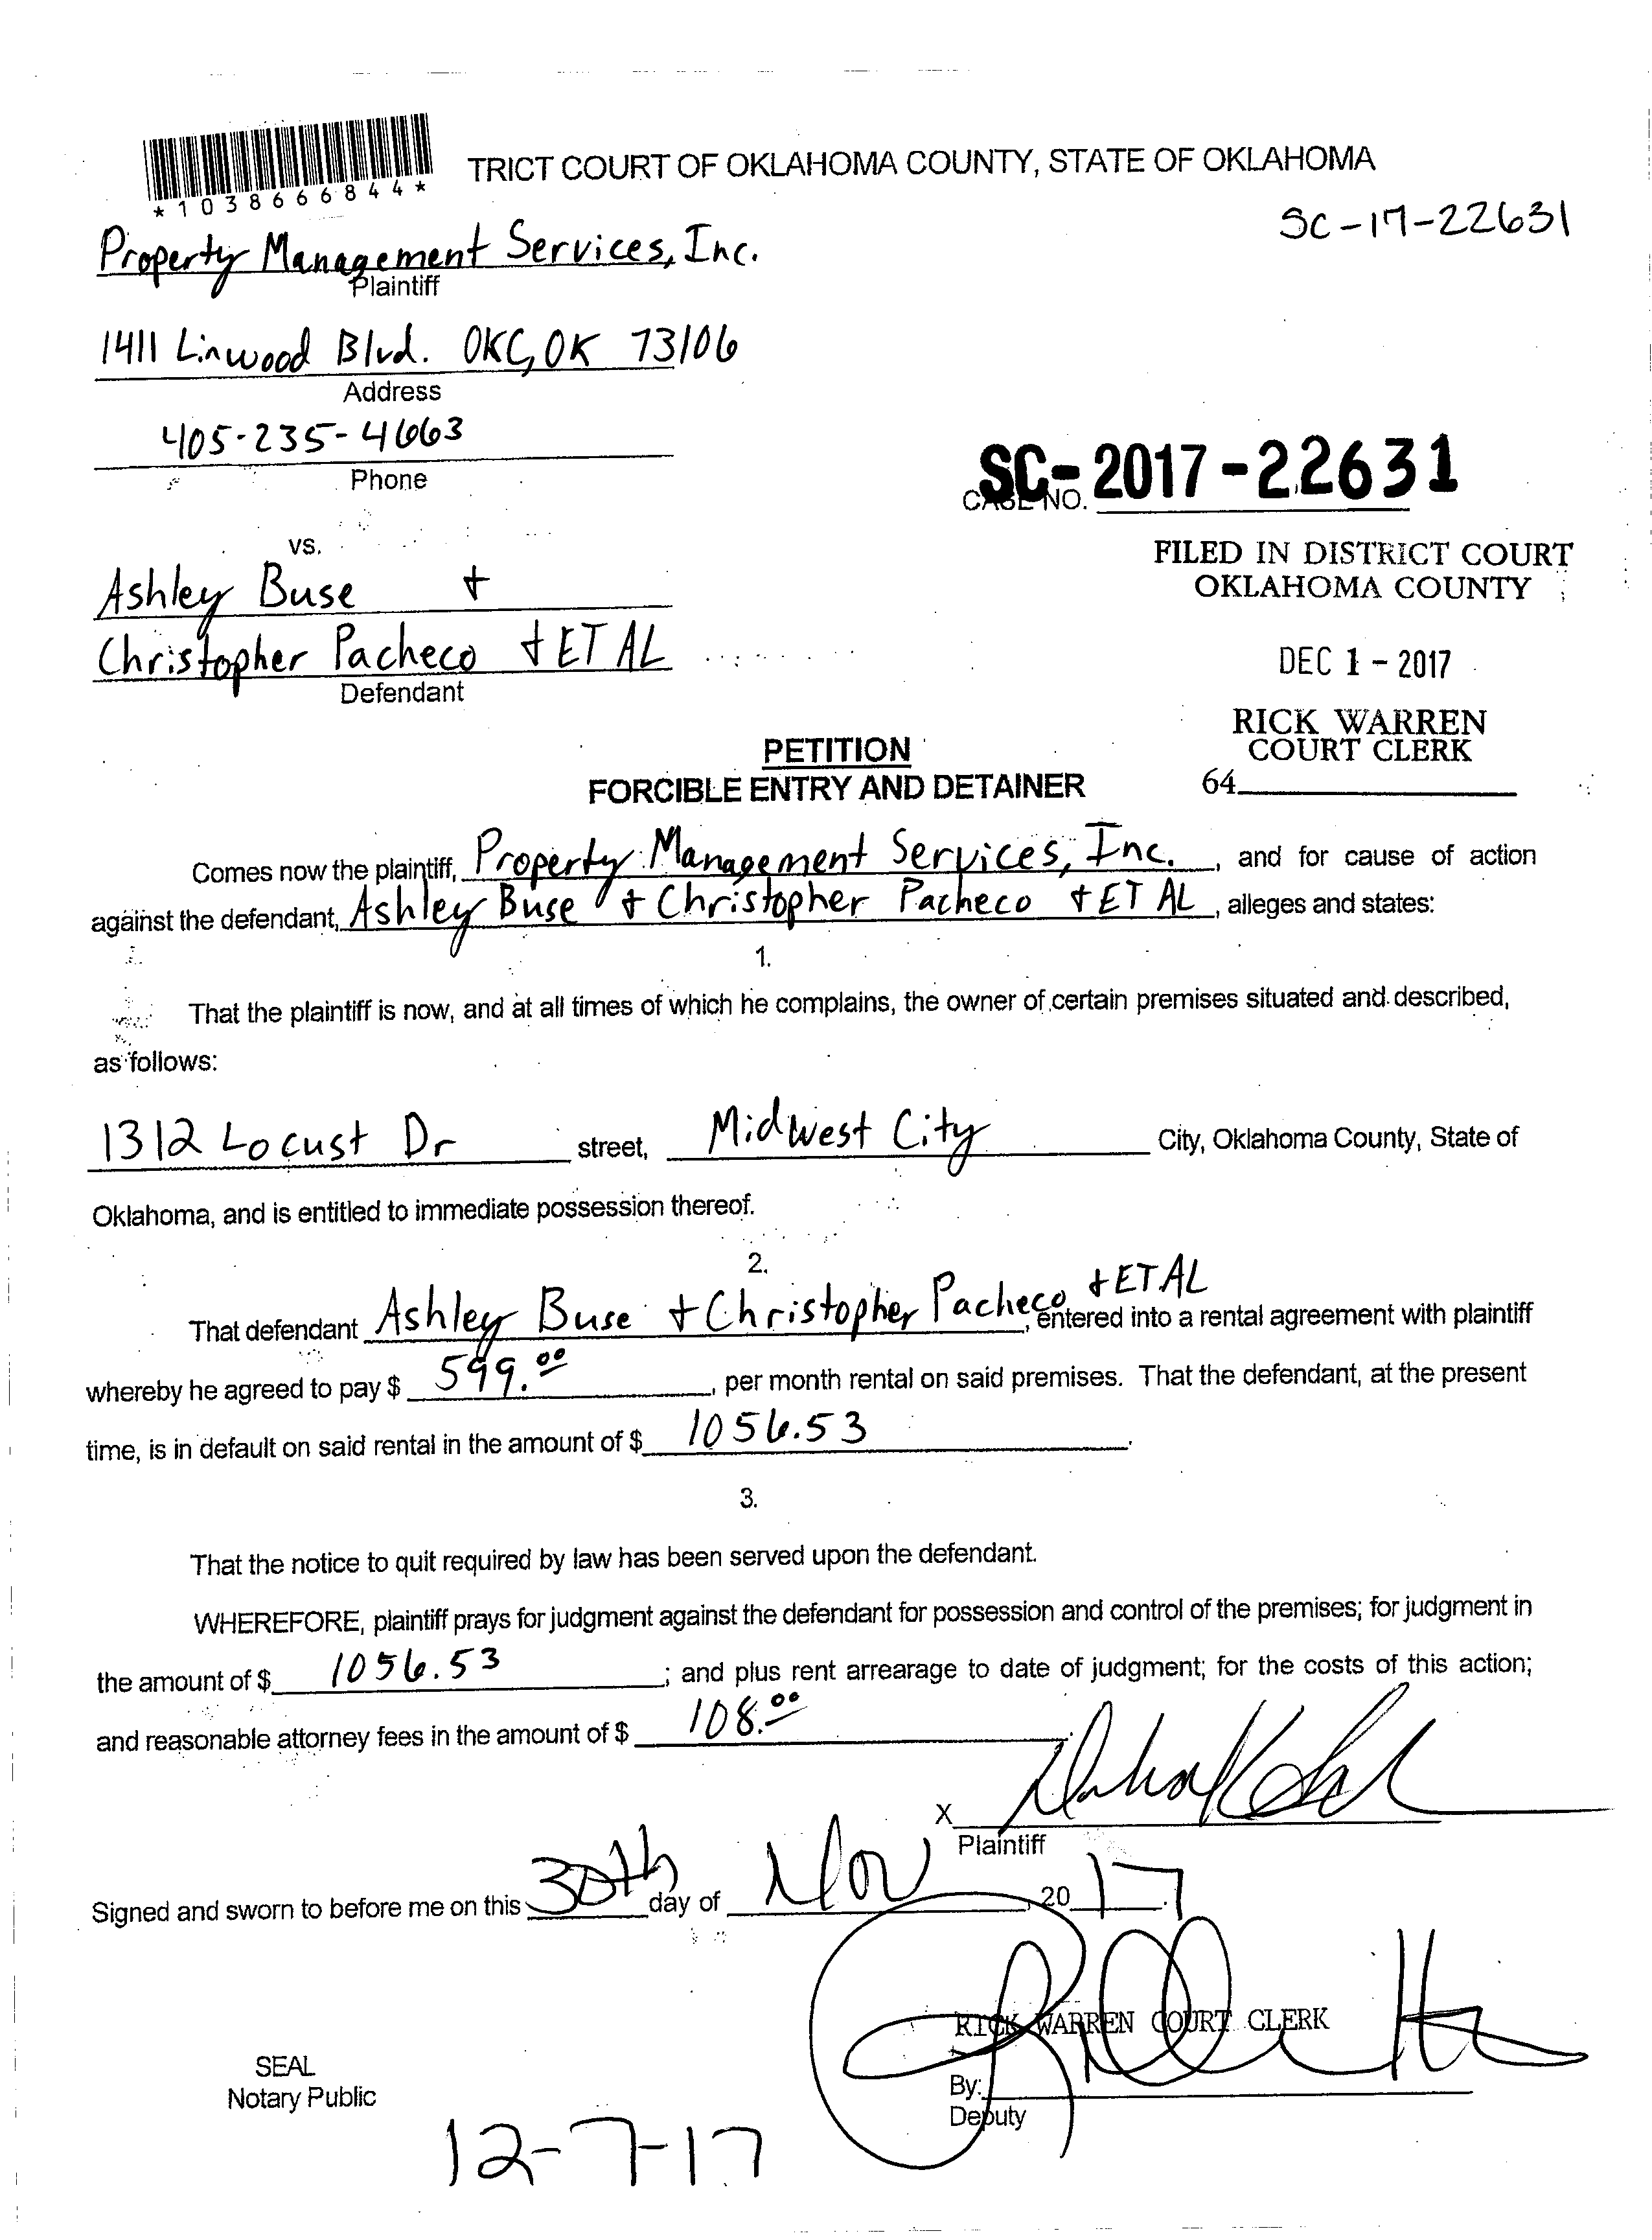 *1038666844*
TRICT COURT OF OKLAHOMA COUNTY, STATE OF OKLAHOMA
SC-17-22631
Property Management Services, Inc.
Plaintiff
1411 Linwood Blvd. OKC, OK 73106
Address
405-235-4663
Phone
SC-2017-22631
CASE NO.
vs.
FILED IN DISTRICT COURT
OKLAHOMA COUNTY
Ashley Buse +
Christopher Pacheco + ET AL
Defendant
DEC 1 - 2017
RICK WARREN
COURT CLERK
64
PETITION
FORCIBLE ENTRY AND DETAINER
Comes now the plaintiff, Property Management Services, Inc., and for cause of action
against the defendant, Ashley Buse + Christopher Pacheco + ET AL, alleges and states:
1.
That the plaintiff is now, and at all times of which he complains, the owner of certain premises situated and described,
as follows:
1312 Locust Dr street, Midwest City City, Oklahoma County, State of
Oklahoma, and is entitled to immediate possession thereof.
2.
That defendant Ashley Buse + Christopher Pacheco + ET AL, entered into a rental agreement with plaintiff
whereby he agreed to pay $ 599.00, per month rental on said premises. That the defendant, at the present
time, is in default on said rental in the amount of $ 1056.53.
3.
That the notice to quit required by law has been served upon the defendant.
WHEREFORE, plaintiff prays for judgment against the defendant for possession and control of the premises; for judgment in
the amount of $ 1056.53; and plus rent arrearage to date of judgment; for the costs of this action;
and reasonable attorney fees in the amount of $ 108.00.
X
Plaintiff
Signed and sworn to before me on this 30th day of Nov, 20 17.
RICK WARREN COURT CLERK
SEAL
Notary Public
By:
Deputy
12-7-17